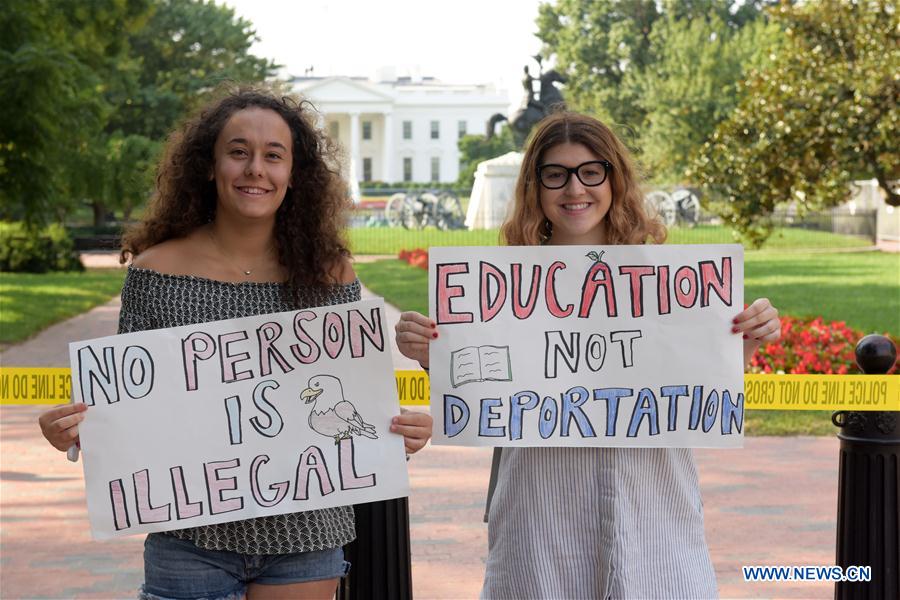 NO PERSON
IS
ILLEGAL
EDUCATION
NOT
DEPORTATION
POLICE LINE DO NOT CROSS
WWW.NEWS.CN